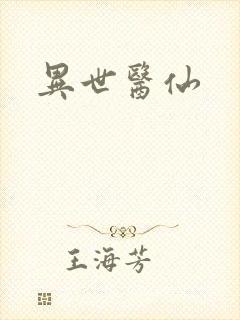 異世醫仙
王海芳